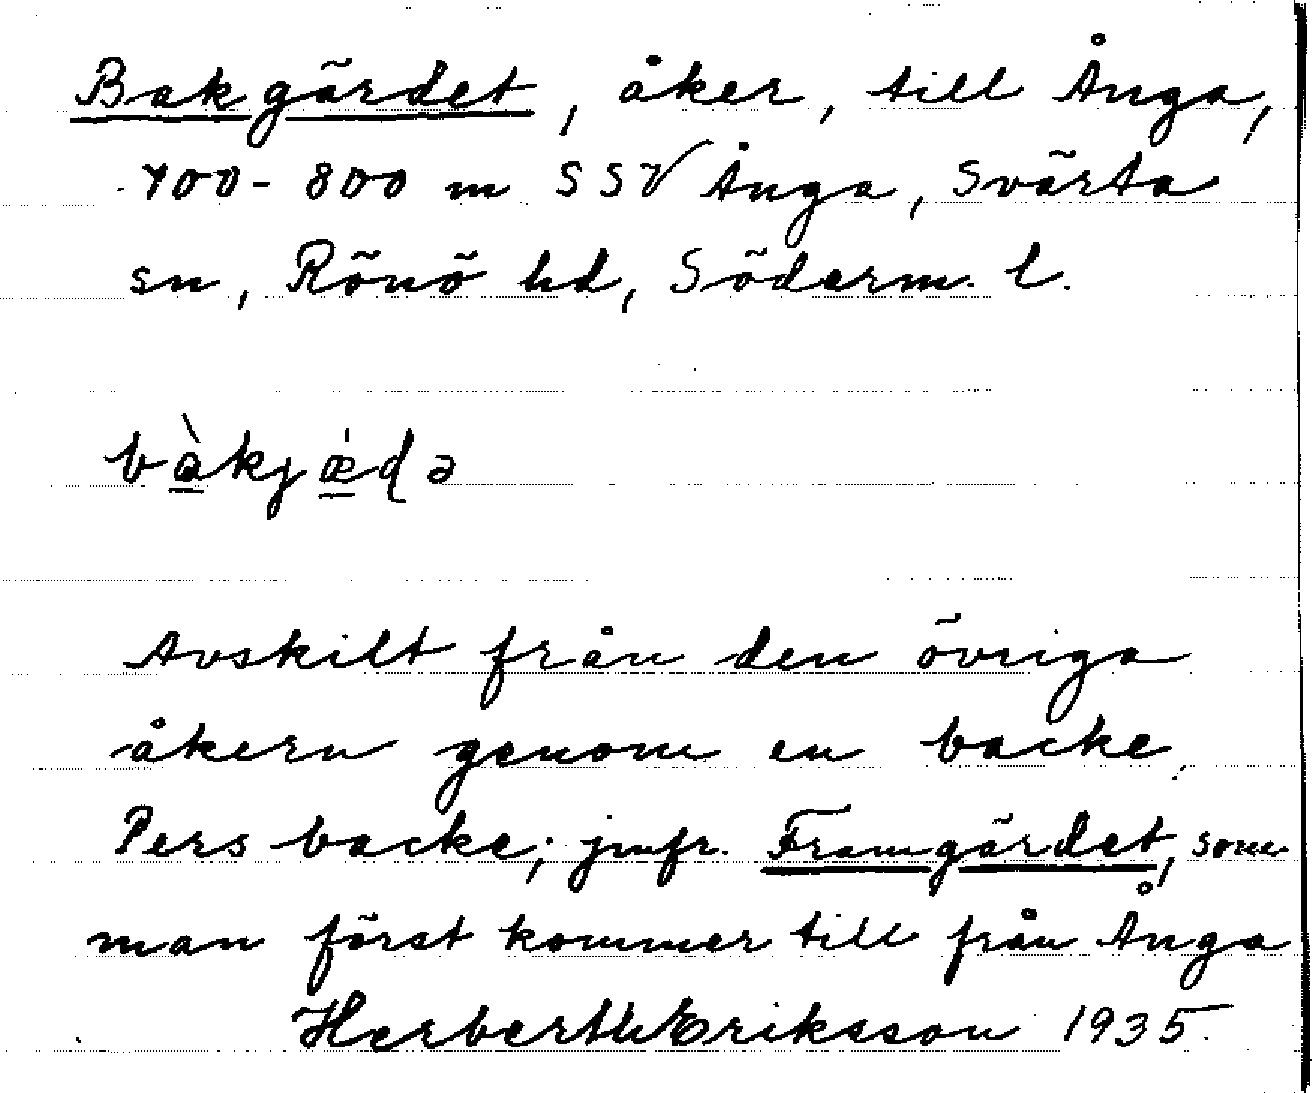 Bakgärdet, åker, till Ånga,
700-800 m SSV Ånga, Svärta
sn, Rönö hd, Söderm. l.
bàkjǽɖə
Avskilt från den övriga
åkern genom en backe,
Pers backe; jmfr. Framgärdet, som
man först kommer till från Ånga
Herbert Eriksson 1935.